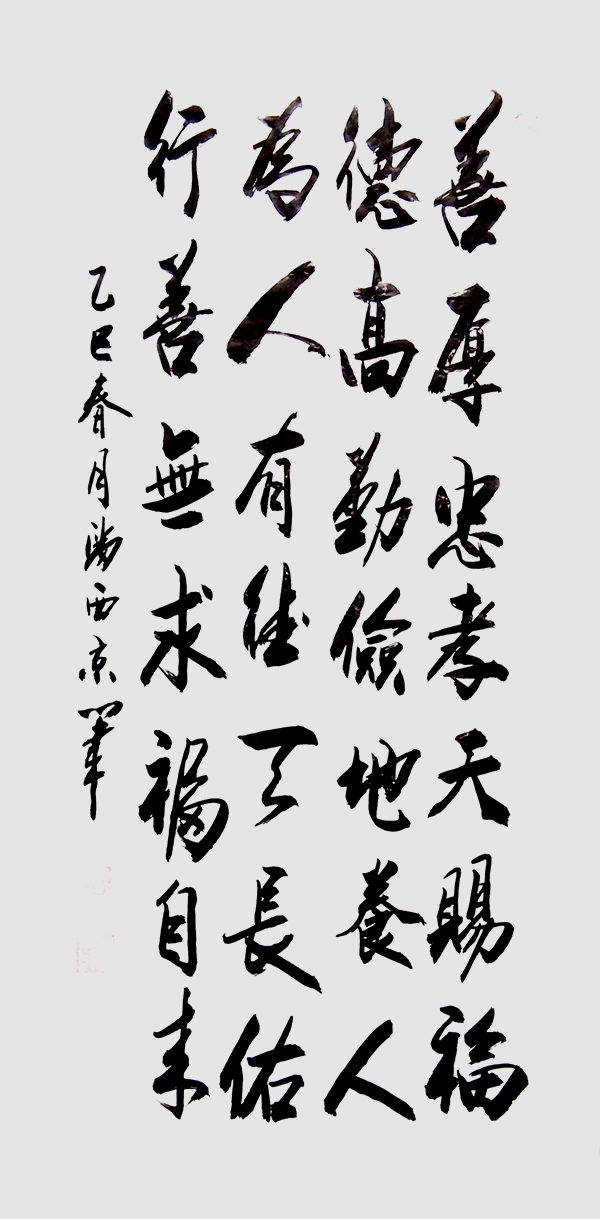 善厚忠孝天賜福
德高勤儉地養人
為人有德天長佑
行善無求福自来
乙巳春月西京筆